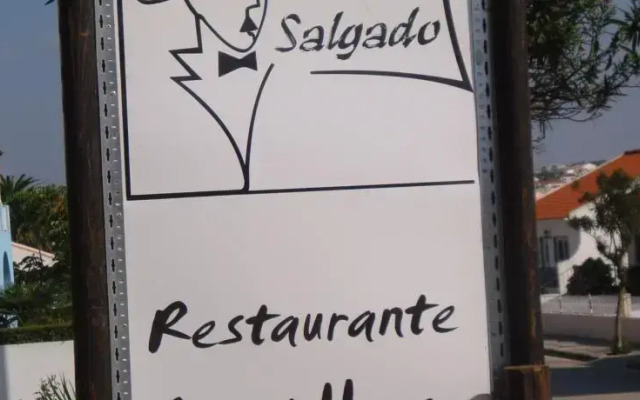 Salgado
Restaurante